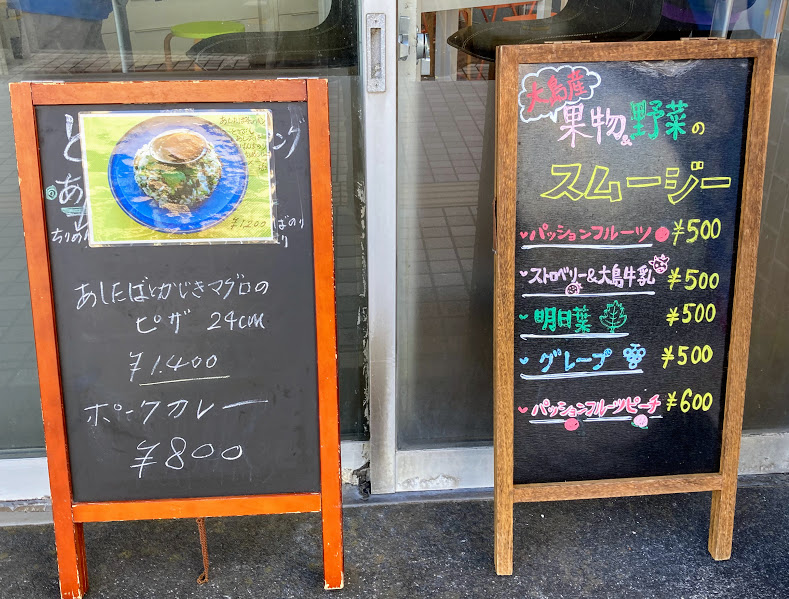 と
ング
あ
ちりめ
ばのり
り
¥1200
あしたばとかじきマグロの
ピザ 24cm
¥1.400
ポークカレー
¥800
大島産
果物&野菜の
スムージー
パッションフルーツ ¥500
ストロベリー&大島牛乳 ¥500
明日葉 ¥500
グレープ ¥500
パッションフルーツピーチ ¥600